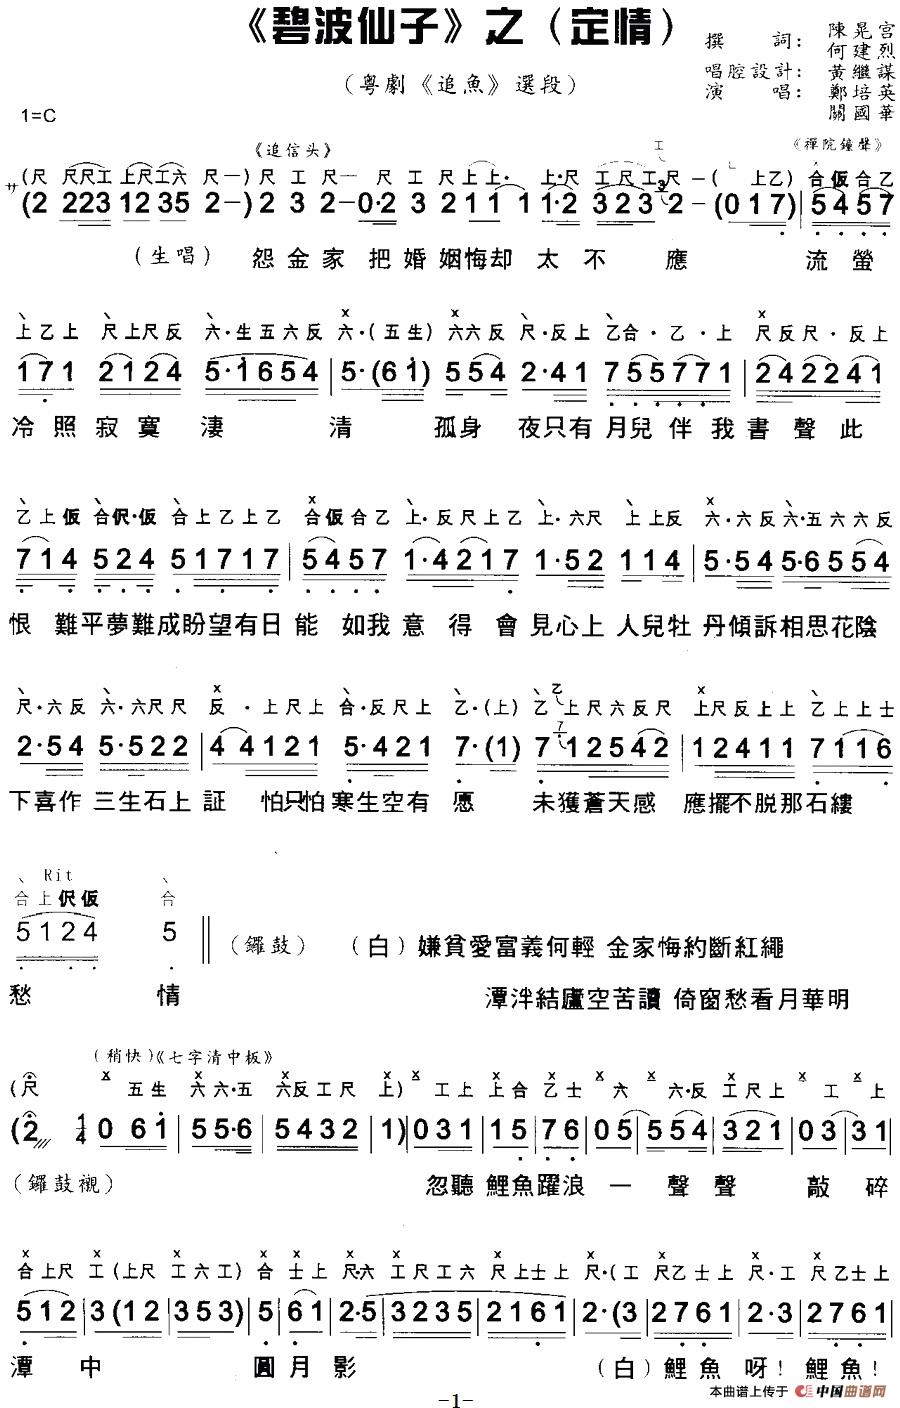 《碧波仙子》之（定情）
（粵劇《追魚》選段）
撰 詞： 陳晃宫
何建烈
唱腔設計： 黃繼謀
演 唱： 鄭培英
關國華
1=C
《追信头》 《禪院鐘聲》
(尺 尺尺工 上尺工六 尺—) 尺 工 尺— 尺 工 尺 上上· 上·尺 工尺工尺 —( 上乙) 合仮合乙
サ (2 223 1235 2 -) 2 3 2 - 0·2 3 2 1 1 1 1·2 323 2 - (0 1 7) | 5457
（生唱） 怨金家 把婚姻悔却 太不 應 流螢
上乙上 尺上尺反 六·生五六反 六·(五生) 六六反 尺·反上 乙合·乙·上 尺反尺·反上
171 2124 5·1654 | 5·(61) 554 2·41 755771 | 242241
冷照寂寞淒 清 孤身 夜只有月兒伴我書聲此
乙上仮 合伬·仮 合上乙上乙 合仮合乙 上·反尺上乙 上·六尺 上上反 六·六反 六·五六六反
714 524 51717 | 5457 1·4217 1·52 114 | 5·54 5·6554
恨 難平夢難成盼望有日能 如我意得會見心上人兒牡丹傾訴相思花陰
尺·六反 六·六尺尺 反·上尺上 合·反尺上 乙·(上) 乙上尺六反尺 上尺反上上 乙上上士
2·54 5·522 | 44121 5·421 7·(1) 712542 | 12411 7116
下喜作三生石上証 怕只怕寒生空有愿 未獲蒼天感 應擺不脱那石縷
Rit
合上伬仮 合
5124 5 ‖ （鑼鼓） （白）嫌貧愛富義何輕 金家悔約斷紅繩
愁 情 潭泮結廬空苦讀 倚窗愁看月華明
（稍快）《七字清中板》
(尺 五生 六六·五 六反工尺 上) 工上 上合 乙士 六 六·反 工尺上 工 上
(2 1/4 061 | 55·6 | 5432 | 1) | 031 | 15 | 76 | 05 | 554 | 321 | 03 | 31
（鑼鼓襯） 忽聽鯉魚躍浪一聲聲 敲碎
合上尺 工 (上尺 工六工) 合 士上 尺·六 工尺工六 尺上士上 尺·(工 尺乙士上 尺·工 尺乙士上
512 | 3 (12 | 353) | 5 | 61 | 2·5 | 3235 | 2161 | 2·(3 | 2761 | 2·3 | 2761
潭中 圓月影 （白）鯉魚呀！鯉魚！
-1-
本曲谱上传于 中国曲谱网